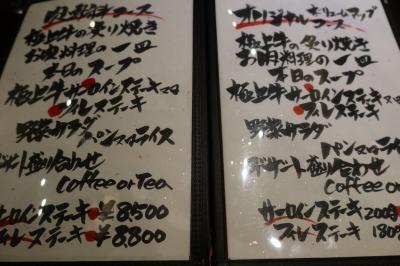 極上牛の炙り焼き
お肉料理の一皿
本日のスープ
極上牛サーロインステーキ又は
フィレステーキ
野菜サラダ
パン又はライス
デザート盛り合わせ
Coffee or Tea
サーロインステーキ ¥8,500
フィレステーキ ¥8,800
オリジナルコース ボリュームアップ
極上牛の炙り焼き
お肉料理の一皿
本日のスープ
極上牛サーロインステーキ又は
フィレステーキ
野菜サラダ
パン又はライ
デザート盛り合わせ
Coffee or
サーロインステーキ 200g
フィレステーキ 180g